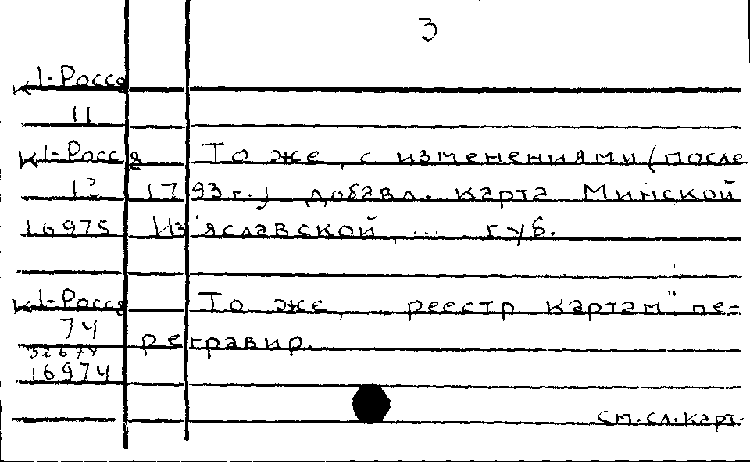 3
К1-Росся
11
К1-Росся То же, с изменениями (после
12 1793г.) добавл. карта Минской
16975 Из'яславской ... губ.
К1-Росся То же, реестр картам" пе-
74 регравир.
32674
16974
См.сл.карт.